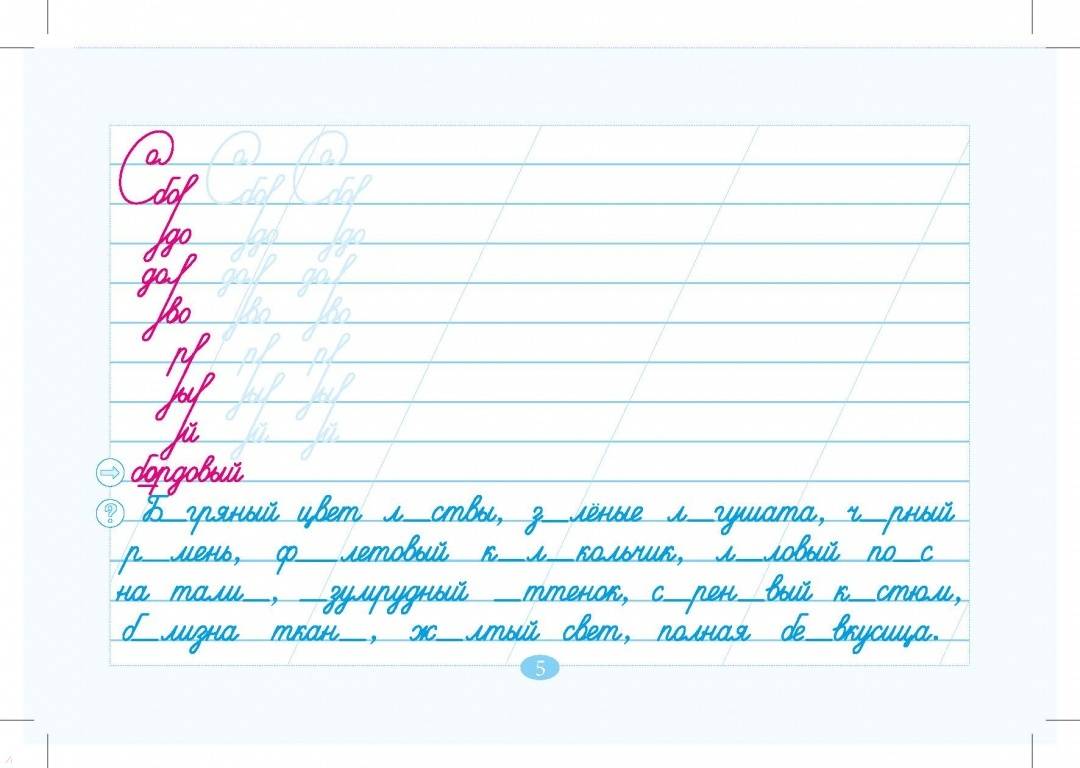 Са Са Са
бо бо бо
до до до
до до до
во во во
р р р
ы ы ы
й й й
бордовый
? Б_гряный цвет л_ствы, з_лёные л_гушата, ч_рный
р_мень, ф_летовый к_л_кольчик, л_ловый по_с
на тали_, _зумрудный _ттенок, с_рен_вый к_стюм,
б_лизна ткан_, ж_лтый свет, полная бе_вкусица.
5